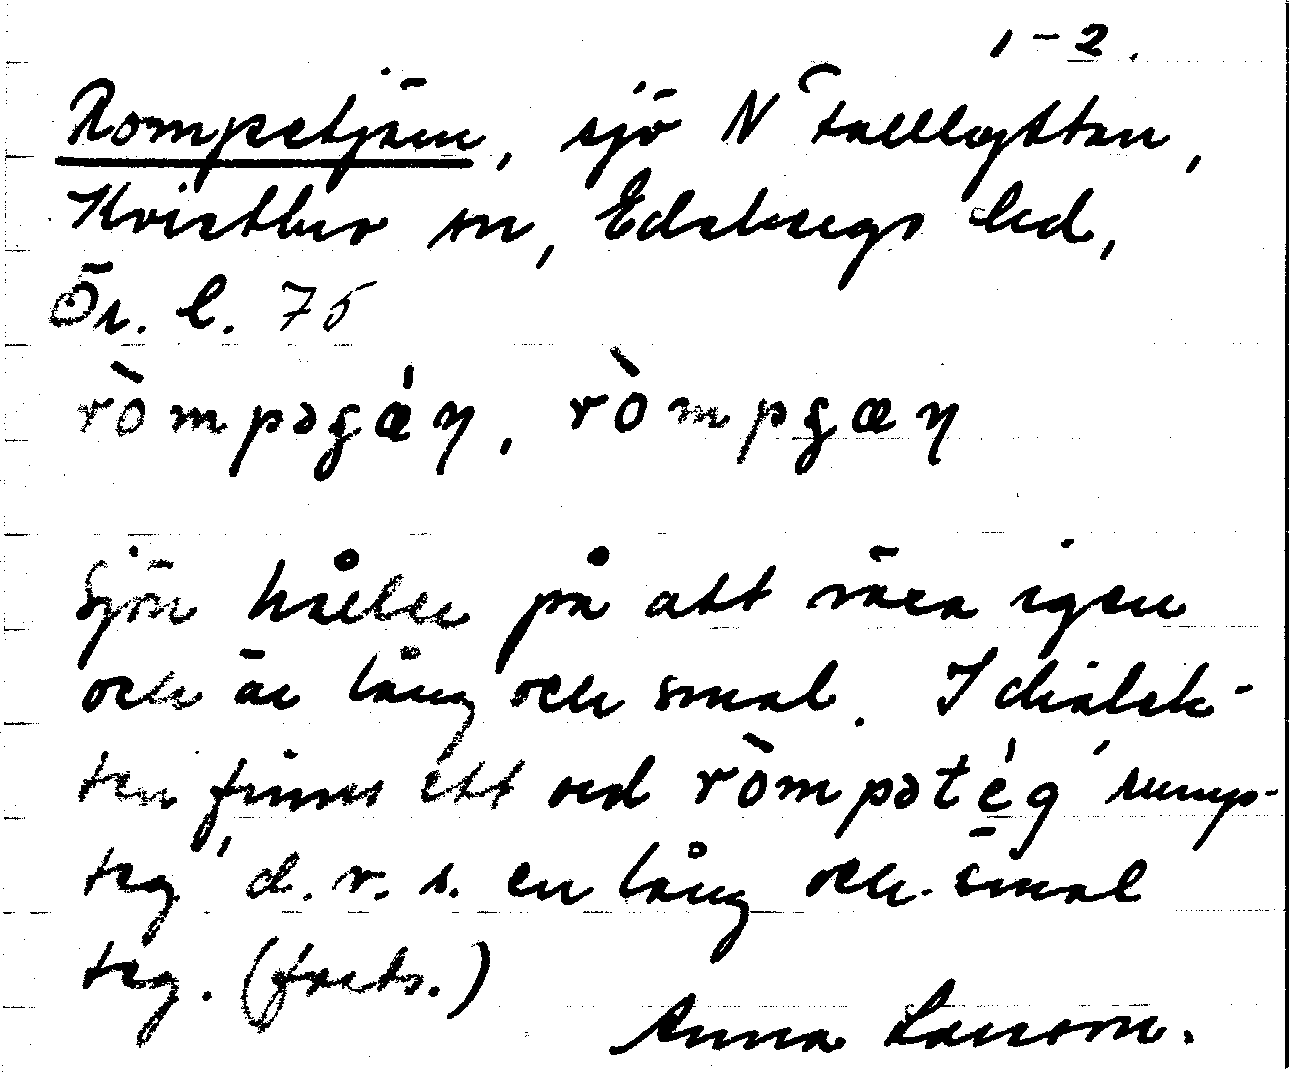 1-2.
Rompetjärn, sjö N Tallhyttan,
Kvistbro sn, Edsbergs hd,
Ör. l. 75
ròmpəgǽn, ròmpgæn
Sjön håller på att växa igen
och är lång och smal. I dialek-
ten finns ett ord ròmpətég 'rump-
teg' d.v.s. en lång och smal
teg. (forts.)
Anna Larsson.